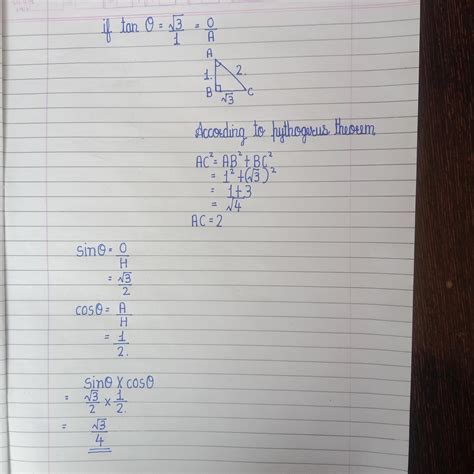 if tan θ = √3/1 = O/A
A
1. 2.
B √3 C
According to pythogerus theorem
AC² = AB² + BC²
= 1² + (√3)²
= 1+3
= √4
AC = 2
sinθ = O/H
= √3/2
cosθ = A/H
= 1/2.
sinθ X cosθ
= √3/2 x 1/2.
= √3/4